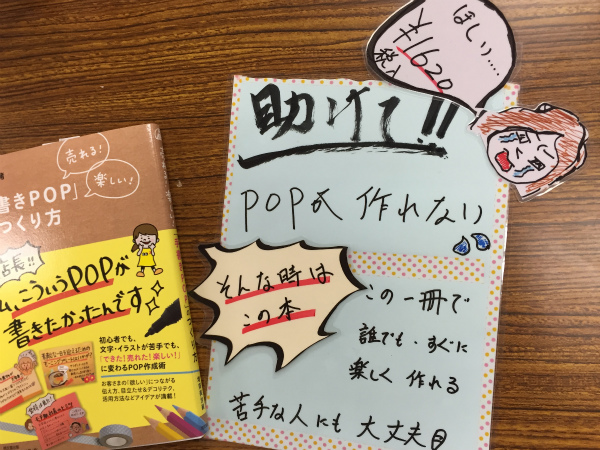 売れる!
楽しい!
書きPOP」
つくり方
店長!!
ム、こういうPOPが
書きたかったんです
初心者でも、
文字・イラストが苦手でも、
「できた!売れた!楽しい!」
に変わるPOP作成術
お客さまの「欲しい」につながる
伝え方、目立たせ&デコリテク、
活用方法などアイデアが満載!
ほしい....
¥1620
税込
助けて!!
POP氏 作れない
そんな時は
この本
この一冊で
誰でも・すぐに
楽しく 作れる
苦手な人にも 大丈夫